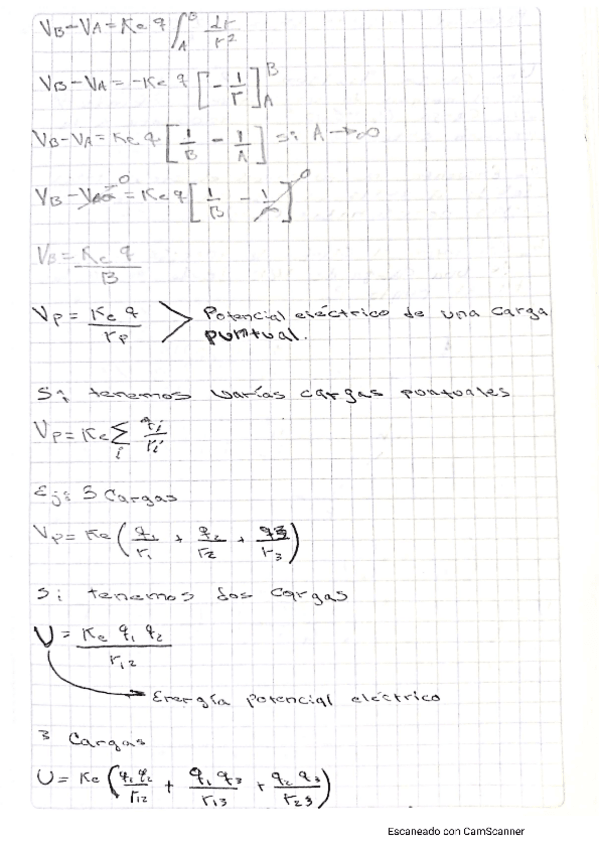 VB-VA=Ke q ∫_A^B dr/r²
VB-VA=-Ke q [-1/r]_A^B
VB-VA=Ke q [1/B - 1/A] si A→∞
VB-V∞=0=Ke q [1/B - 1/A→0]
VB=Ke q/B
Vp=Ke q/rp > Potencial eléctrico de una carga puntual.
Si tenemos varías cargas pontuales
Vp=Ke∑i qi/ri
Ej: 3 Cargas
Vp=Ke(q1/r1 + q2/r2 + q3/r3)
Si tenemos dos cargas
U=Ke q1 q2/r12
→Energía potencial eléctrico
3 Cargas
U=Ke(q1 q2/r12 + q1 q3/r13 + q2 q3/r23)
Escaneado con CamScanner